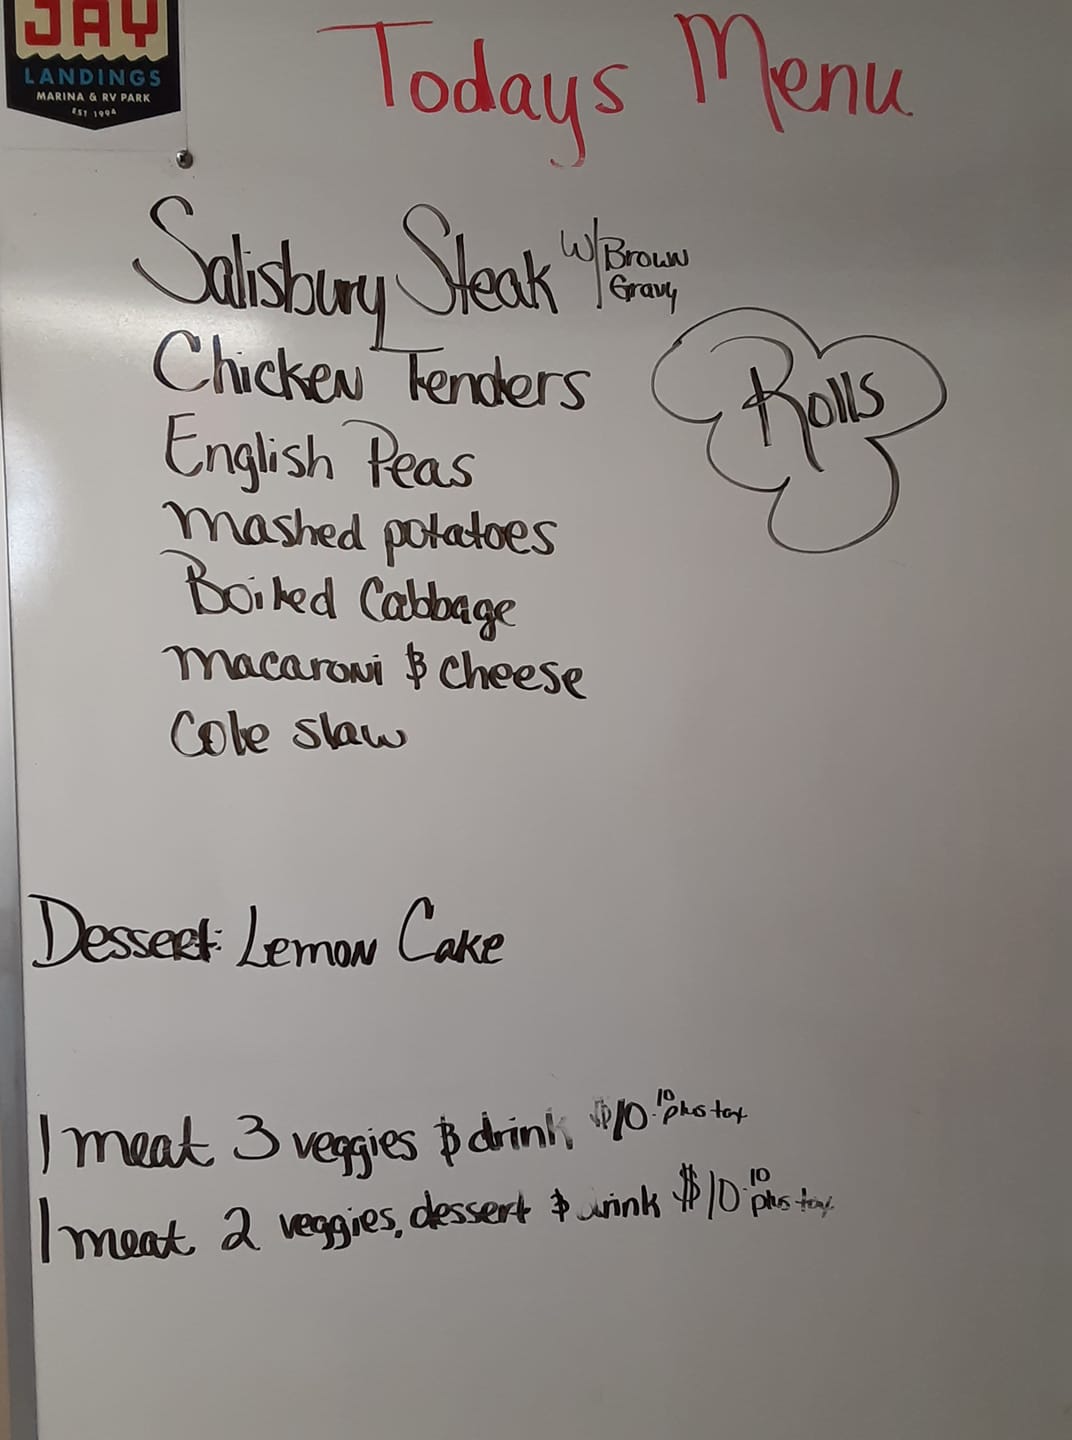 JAY
LANDINGS
MARINA & RV PARK
EST 1994
Todays Menu
Salisbury Steak w/Brown Gravy
Chicken Tenders
Rolls
English Peas
mashed potatoes
Boiled Cabbage
macaroni & cheese
Cole slaw
Dessert: Lemon Cake
1 meat 3 veggies & drink $10.10 plus tax
1 meat 2 veggies, dessert & drink $10.10 plus tax